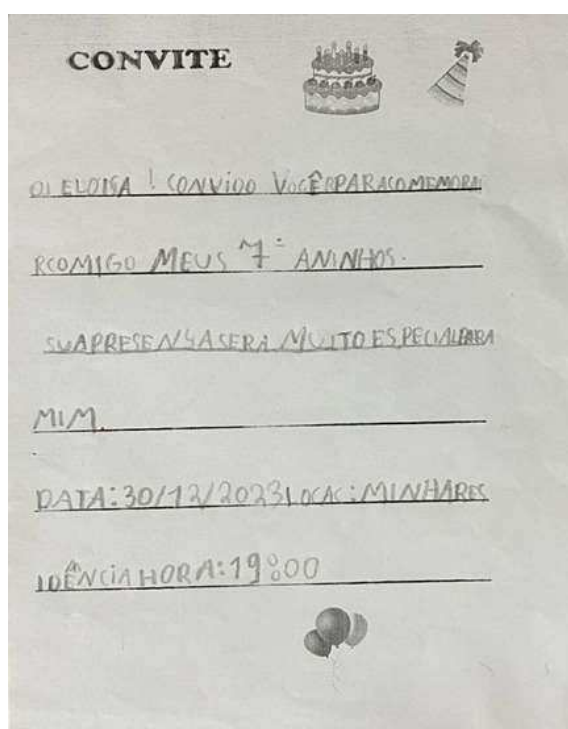 CONVITE
OI ELOISA ! CONVIDO VOCÊRPARACOMEMORA
RCOMIGO MEUS 7: ANINHOS.
SUAPRESENSASERA MUITO ESPECIALPARA
MIM.
DATA:30/12/2023LOCAL:MINHARES
IDÊNCIAHORA:19:00